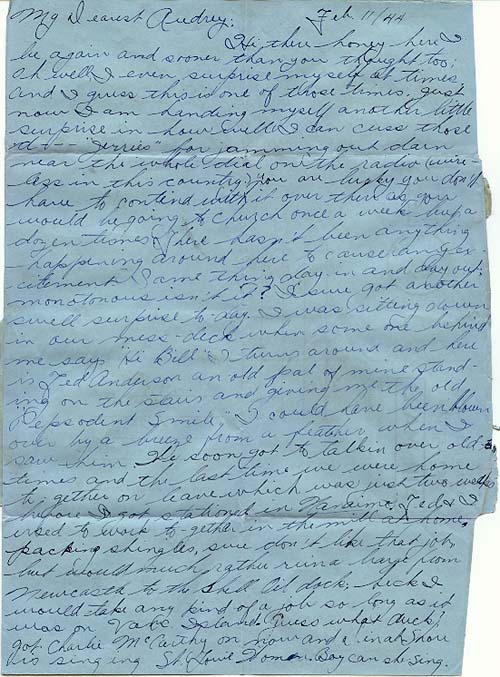 My Dearest Audrey: Feb. 11/44
Hi, there honey here I
be again and sooner than you thought too;
Ah well I even surprise myself at times
and I guess this is one of those times, just
now I am handing myself another little
surprise in how well I can cuss those
"Jerries" for jamming out darn
near the whole dial on the radio (wire-
less in this country) you are lucky you don't
have to contend with it over there as you
would be going to church once a week but a
dozen times. There hasn't been anything
happening around here to cause any ex-
citement same thing day in and day out;
monotonous isn't it? I sure got another
swell surprise to-day. I was sitting down
in our mess-deck when some one behind
me says "Hi Bill" I turns around and here
is Ted Anderson an old pal of mine stand-
ing on the stairs and giving me the old
"Pepsodent Smile" I could have been blown
over by a breeze from a feather when I
saw him. We soon got to talkin over old
times and the last time we were home
to gether on leave which was just two weeks
before I got stationed in Nanaimo. Ted & I
used to work to-gether in the mill at home,
packing shingles, sure don't like that job,
but would much rather run a barge from
Newcastle to the Shell Oil dock; heck I
would take any kind of a job so long as it
was on Vanc. Island. Guess what duck;
got Charlie McCarthy on now and Dinah Shore
is sing ing St. Louie Woman. Boy can she sing.